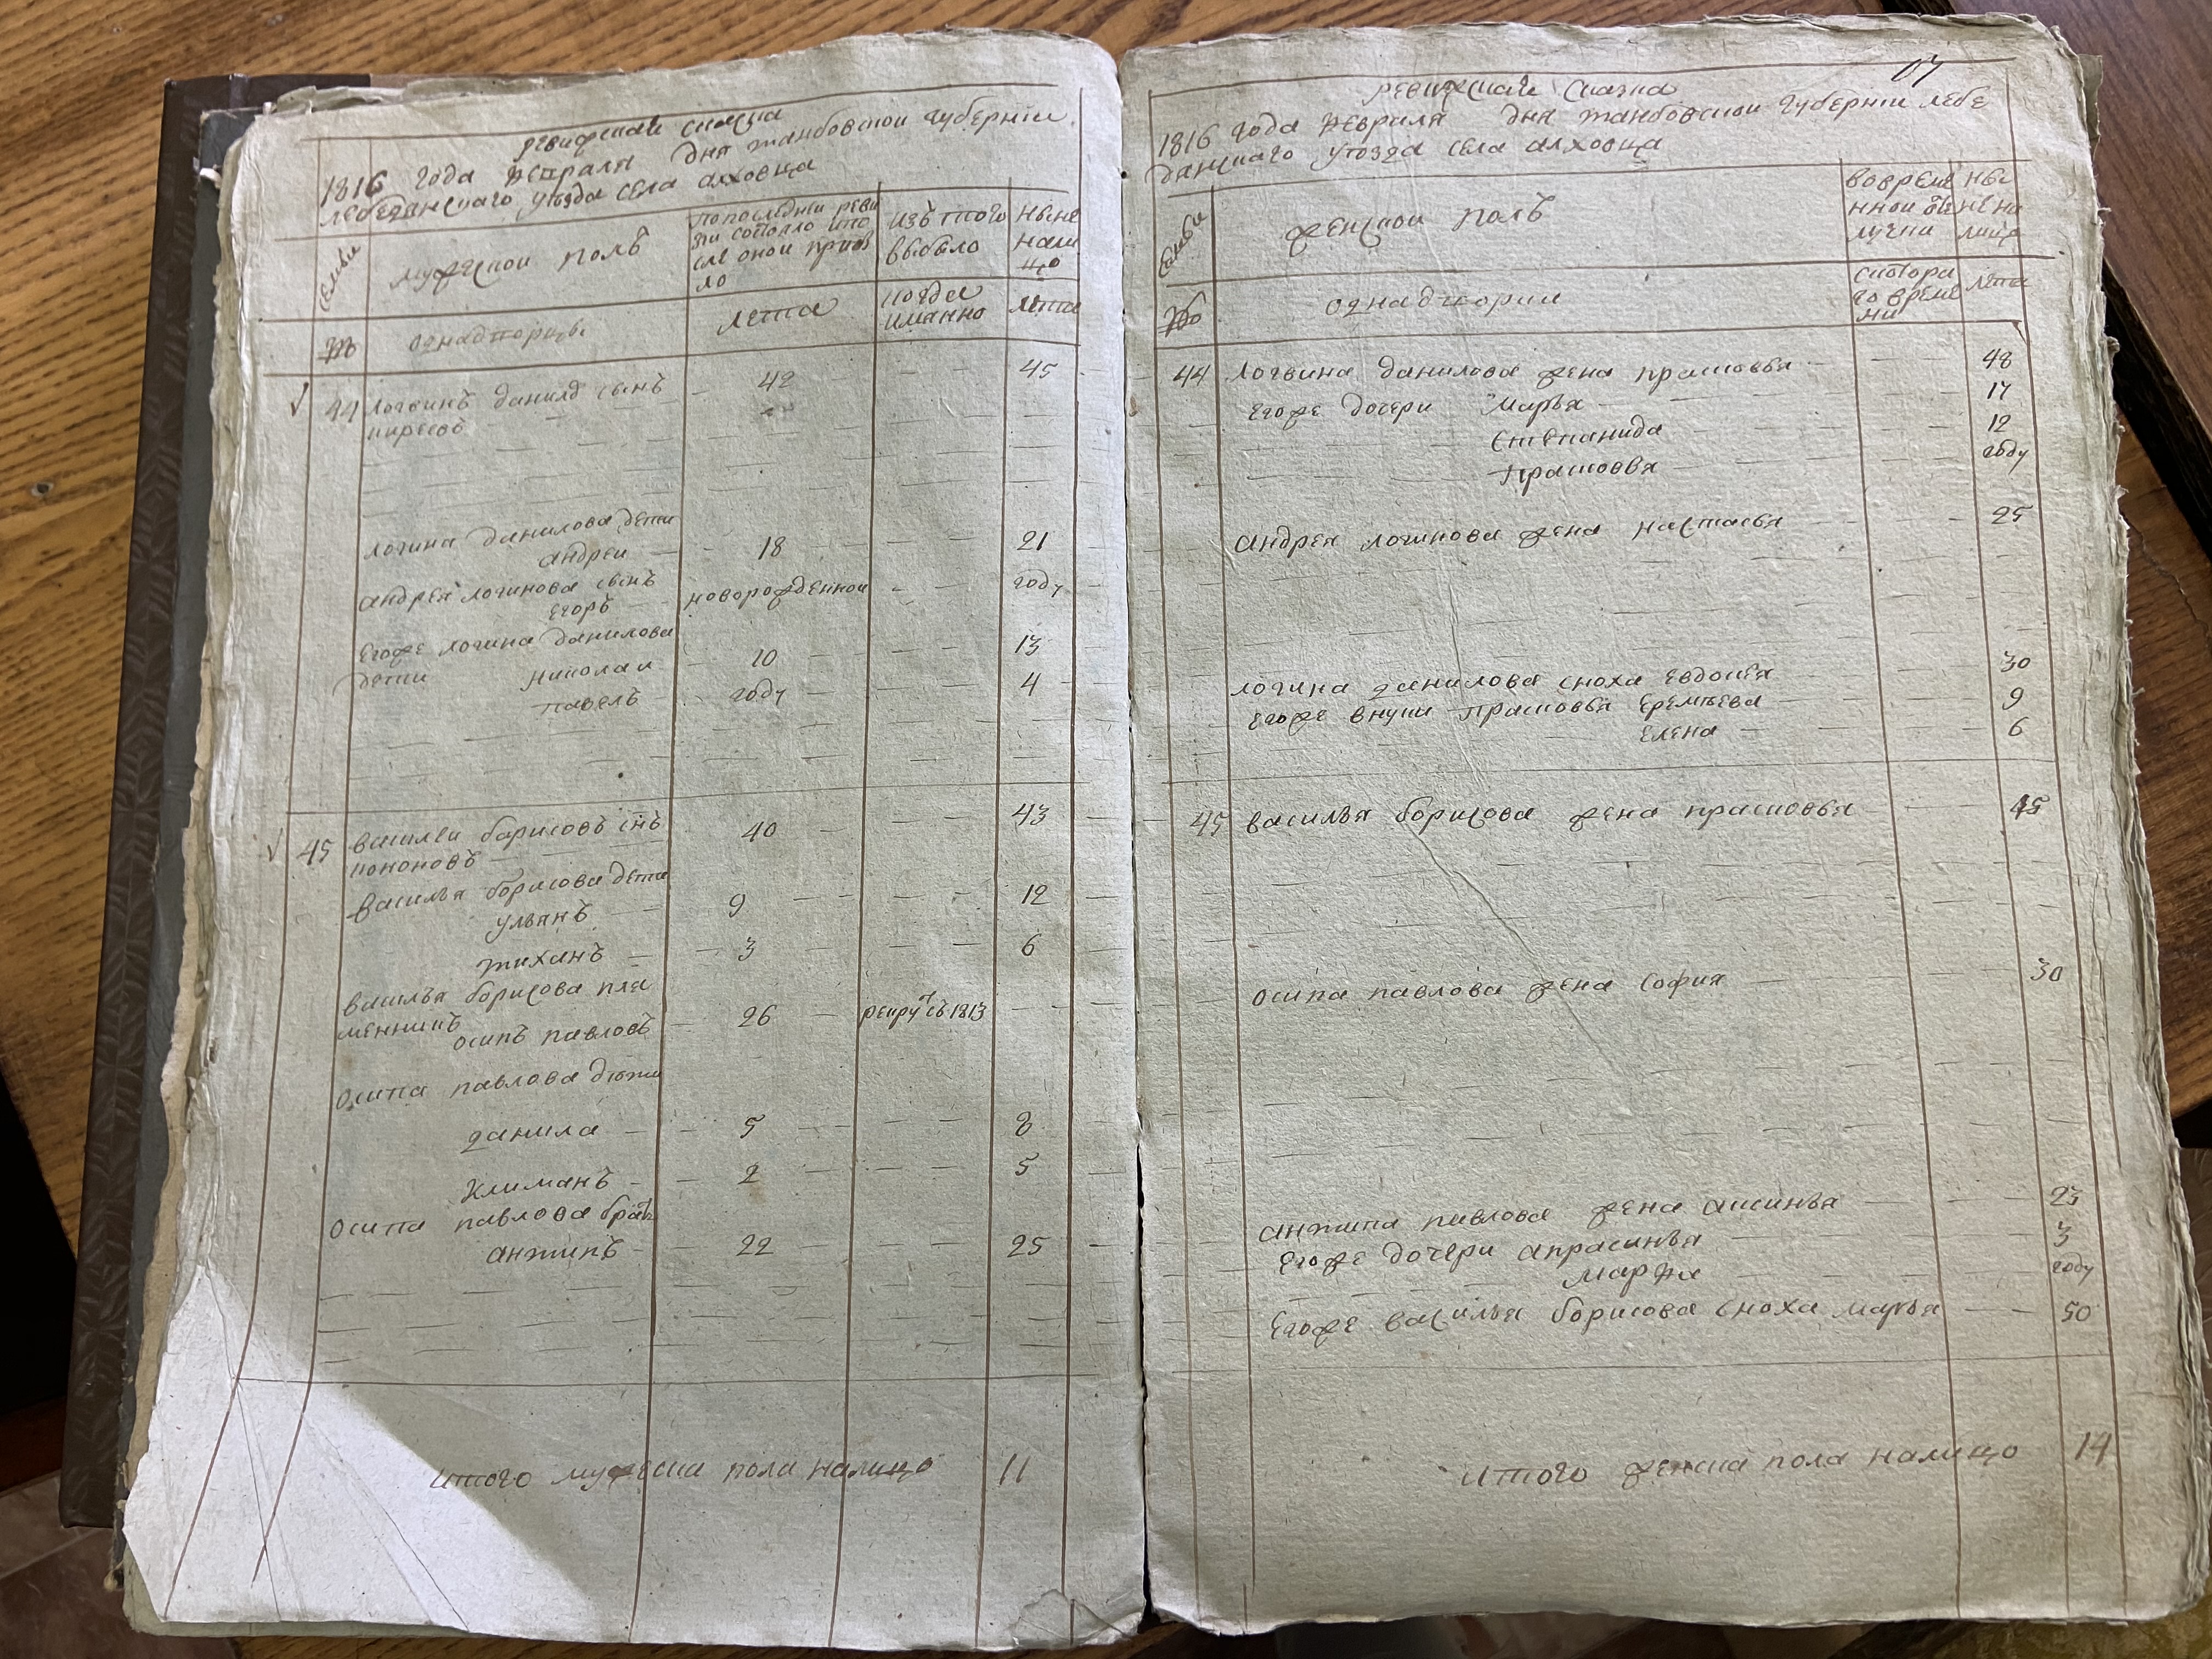 ревижская сказка
1816 года февраля дня танбовской губернїи
лебедянскаго уѣзда села алховца
семьи
мужескои полъ
попоследнїи реви
зїи состояло ипо
сле онои прибы
ло
изъ того
выбыло
ныне
нали
цо
№
однадворцы
лета
когда
иманно
лета
44 логвинъ данилъ сынъ 42 45
киреевъ
логина данилова дети
андреи 18 21
андрея логинова сынъ
егоръ новорожденнои году
егоже логина данилова
дети николаи 10 13
павелъ году 4
45 василеи борисовъ снъ 40 43
кононовъ
василья борисова дети
ульянъ 9 12
тиханъ 3 6
василья борисова пле
менникъ
осипъ павловъ 26 рекрутъ съ 1813
осипа павлова дѣти
данила 5 8
климанъ 2 5
осипа павлова братъ
антипъ 22 25
итого мужеска пола налицо 11
07
ревижская сказка
1816 года февраля дня танбовскои губернїи лебе
данскаго уѣзда села алховца
семьи
женскои полъ
вовреме
ннои от
лучки
ны
не на
лицо
№
однадворки
скотора
го време
ни
лета
44 логвина данилова жена прасковья 48
егоже дочери Марья 17
степанида 12
прасковья году
андрея логинова жена настасья 25
логина данилова сноха евдокея 30
егоже внуки прасковья еремѣева 9
елена 6
45 василья борисова жена прасковья 45
осипа павлова жена софия 30
антипа павлова жена аксинья 25
егоже дочери апрасинья 3
марфа году
егоже василья борисова сноха марья 50
итого женска пола налицо 14